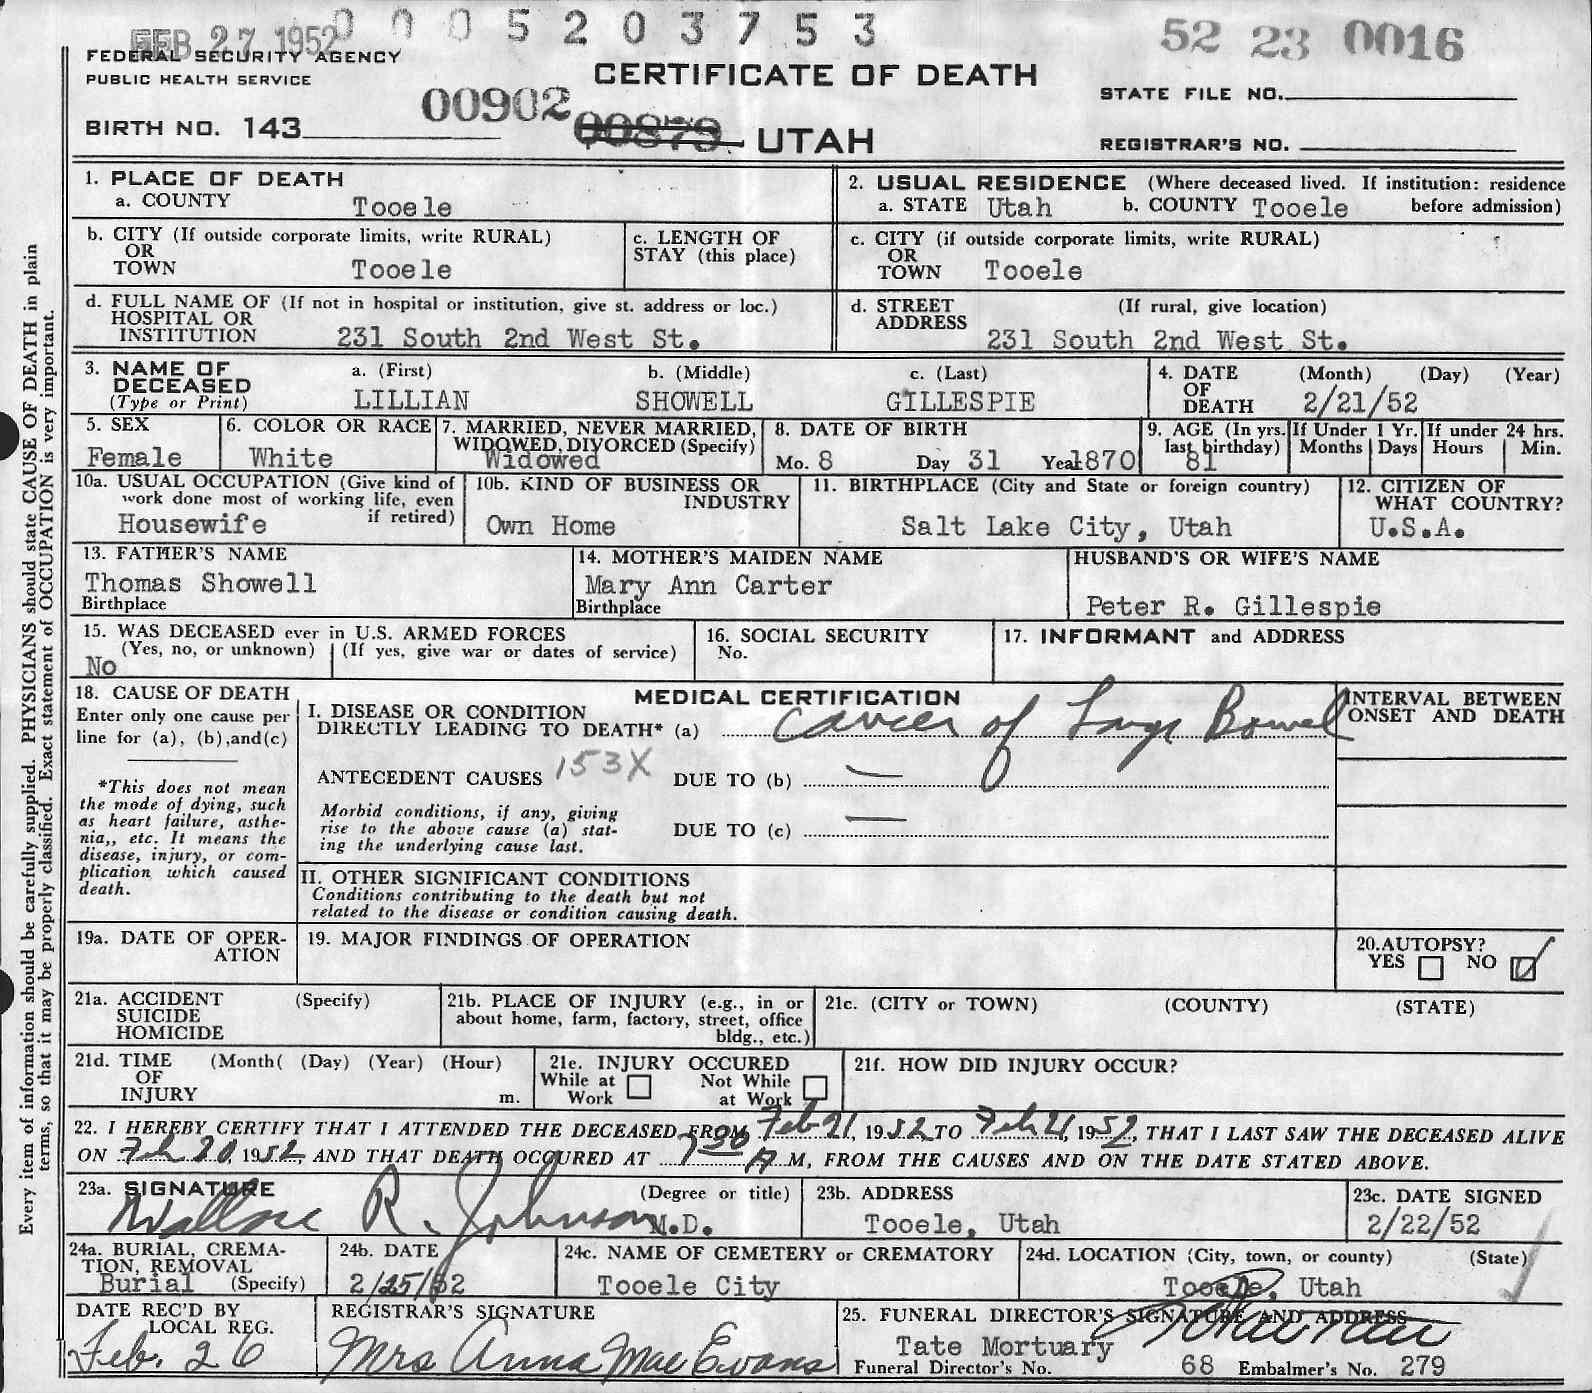 FEB 27 1952
0005203753
52 23 0016
FEDERAL SECURITY AGENCY
PUBLIC HEALTH SERVICE
CERTIFICATE OF DEATH
STATE FILE NO.
00902
00879
BIRTH NO. 143
UTAH
REGISTRAR'S NO.
1. PLACE OF DEATH
a. COUNTY Tooele
2. USUAL RESIDENCE (Where deceased lived. If institution: residence
a. STATE Utah b. COUNTY Tooele before admission)
b. CITY (If outside corporate limits, write RURAL)
OR
TOWN Tooele
c. LENGTH OF
STAY (this place)
c. CITY (if outside corporate limits, write RURAL)
OR
TOWN Tooele
d. FULL NAME OF (If not in hospital or institution, give st. address or loc.)
HOSPITAL OR
INSTITUTION 231 South 2nd West St.
d. STREET (If rural, give location)
ADDRESS
231 South 2nd West St.
3. NAME OF a. (First) b. (Middle) c. (Last)
DECEASED
(Type or Print) LILLIAN SHOWELL GILLESPIE
4. DATE (Month) (Day) (Year)
OF
DEATH 2/21/52
5. SEX
Female
6. COLOR OR RACE
White
7. MARRIED, NEVER MARRIED,
WIDOWED, DIVORCED (Specify)
Widowed
8. DATE OF BIRTH
Mo. 8 Day 31 Year 1870
9. AGE (In yrs.
last birthday)
81
If Under 1 Yr.
Months Days
If under 24 hrs.
Hours Min.
10a. USUAL OCCUPATION (Give kind of
work done most of working life, even
if retired)
Housewife
10b. KIND OF BUSINESS OR
INDUSTRY
Own Home
11. BIRTHPLACE (City and State or foreign country)
Salt Lake City, Utah
12. CITIZEN OF
WHAT COUNTRY?
U.S.A.
13. FATHER'S NAME
Thomas Showell
Birthplace
14. MOTHER'S MAIDEN NAME
Mary Ann Carter
Birthplace
HUSBAND'S OR WIFE'S NAME
Peter R. Gillespie
15. WAS DECEASED ever in U.S. ARMED FORCES
(Yes, no, or unknown) (If yes, give war or dates of service)
No
16. SOCIAL SECURITY
No.
17. INFORMANT and ADDRESS
18. CAUSE OF DEATH
Enter only one cause per
line for (a), (b),and(c)
*This does not mean
the mode of dying, such
as heart failure, asthe-
nia,, etc. It means the
disease, injury, or com-
plication which caused
death.
MEDICAL CERTIFICATION
I. DISEASE OR CONDITION
DIRECTLY LEADING TO DEATH* (a) Cancer of Large Bowel
ANTECEDENT CAUSES 153X DUE TO (b) —
Morbid conditions, if any, giving
rise to the above cause (a) stat-
ing the underlying cause last.
DUE TO (c) —
INTERVAL BETWEEN
ONSET AND DEATH
II. OTHER SIGNIFICANT CONDITIONS
Conditions contributing to the death but not
related to the disease or condition causing death.
19a. DATE OF OPER-
ATION
19. MAJOR FINDINGS OF OPERATION
20.AUTOPSY?
YES NO
21a. ACCIDENT (Specify)
SUICIDE
HOMICIDE
21b. PLACE OF INJURY (e.g., in or
about home, farm, factory, street, office
bldg., etc.)
21c. (CITY or TOWN) (COUNTY) (STATE)
21d. TIME (Month( (Day) (Year) (Hour)
OF
INJURY m.
21e. INJURY OCCURED
While at Work
Not While at Work
21f. HOW DID INJURY OCCUR?
22. I HEREBY CERTIFY THAT I ATTENDED THE DECEASED FROM Feb 21, 1952 TO Feb 21, 1952, THAT I LAST SAW THE DECEASED ALIVE
ON Feb 20, 1952, AND THAT DEATH OCCURED AT 7 30 A M, FROM THE CAUSES AND ON THE DATE STATED ABOVE.
23a. SIGNATURE (Degree or title)
Wallace R. Johnson M.D.
23b. ADDRESS
Tooele, Utah
23c. DATE SIGNED
2/22/52
24a. BURIAL, CREMA-
TION, REMOVAL
Burial (Specify)
24b. DATE
2/25/52
24c. NAME OF CEMETERY or CREMATORY
Tooele City
24d. LOCATION (City, town, or county) (State)
Tooele, Utah
DATE REC'D BY
LOCAL REG.
Feb. 26
REGISTRAR'S SIGNATURE
Mrs Anna Mae Evans
25. FUNERAL DIRECTOR'S SIGNATURE AND ADDRESS
Tate Mortuary
Funeral Director's No. 68 Embalmer's No. 279
Every item of information should be carefully supplied. PHYSICIANS should state CAUSE OF DEATH in plain
terms, so that it may be properly classified. Exact statement of OCCUPATION is very important.